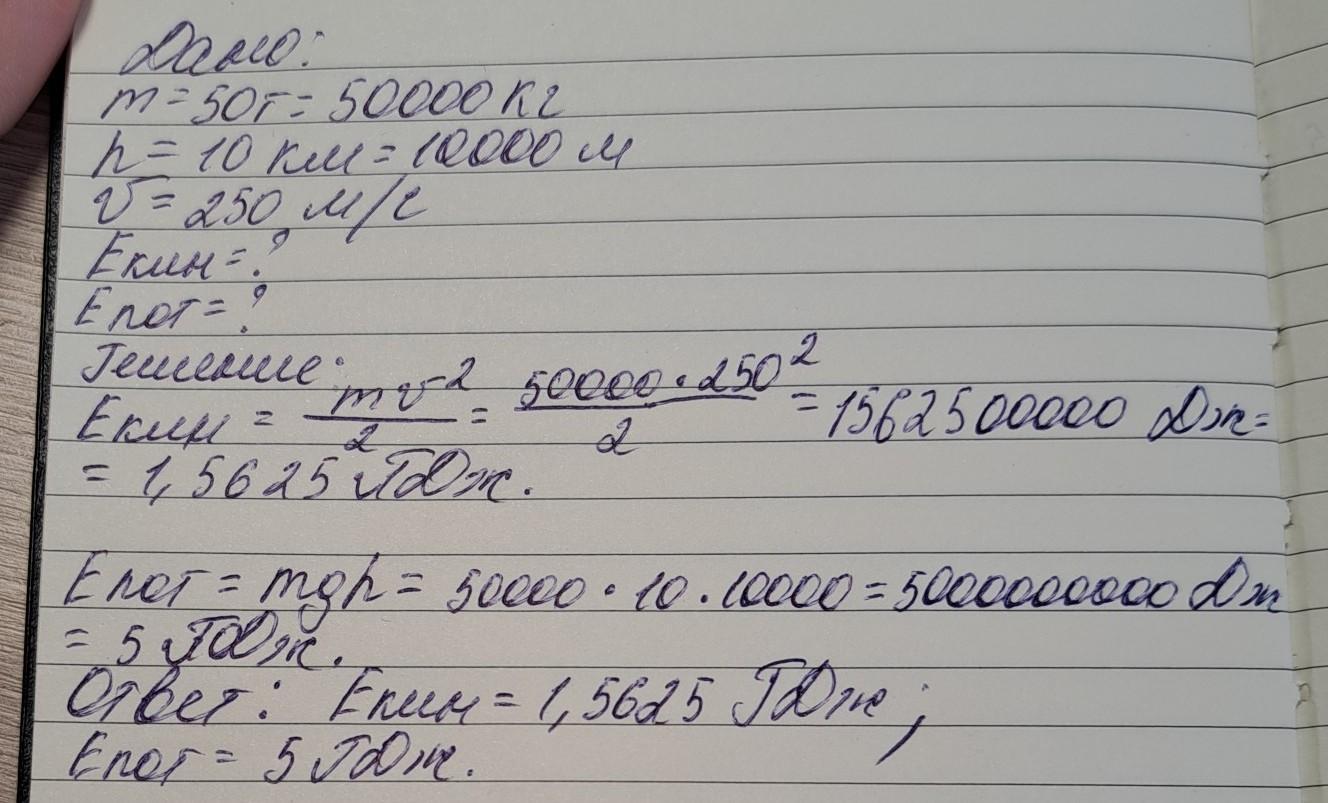 Дано:
m = 50т = 50000 кг
h = 10 км = 10000 м
v = 250 м/с
Eкин = ?
Eпот = ?
Решение:
Eкин = mv²/2 = 50000 · 250²/2 = 1562500000 Дж =
= 1,5625 ГДж.
Eпот = mgh = 50000 · 10 · 10000 = 5000000000 Дж
= 5 ГДж.
Ответ: Eкин = 1,5625 ГДж;
Eпот = 5 ГДж.